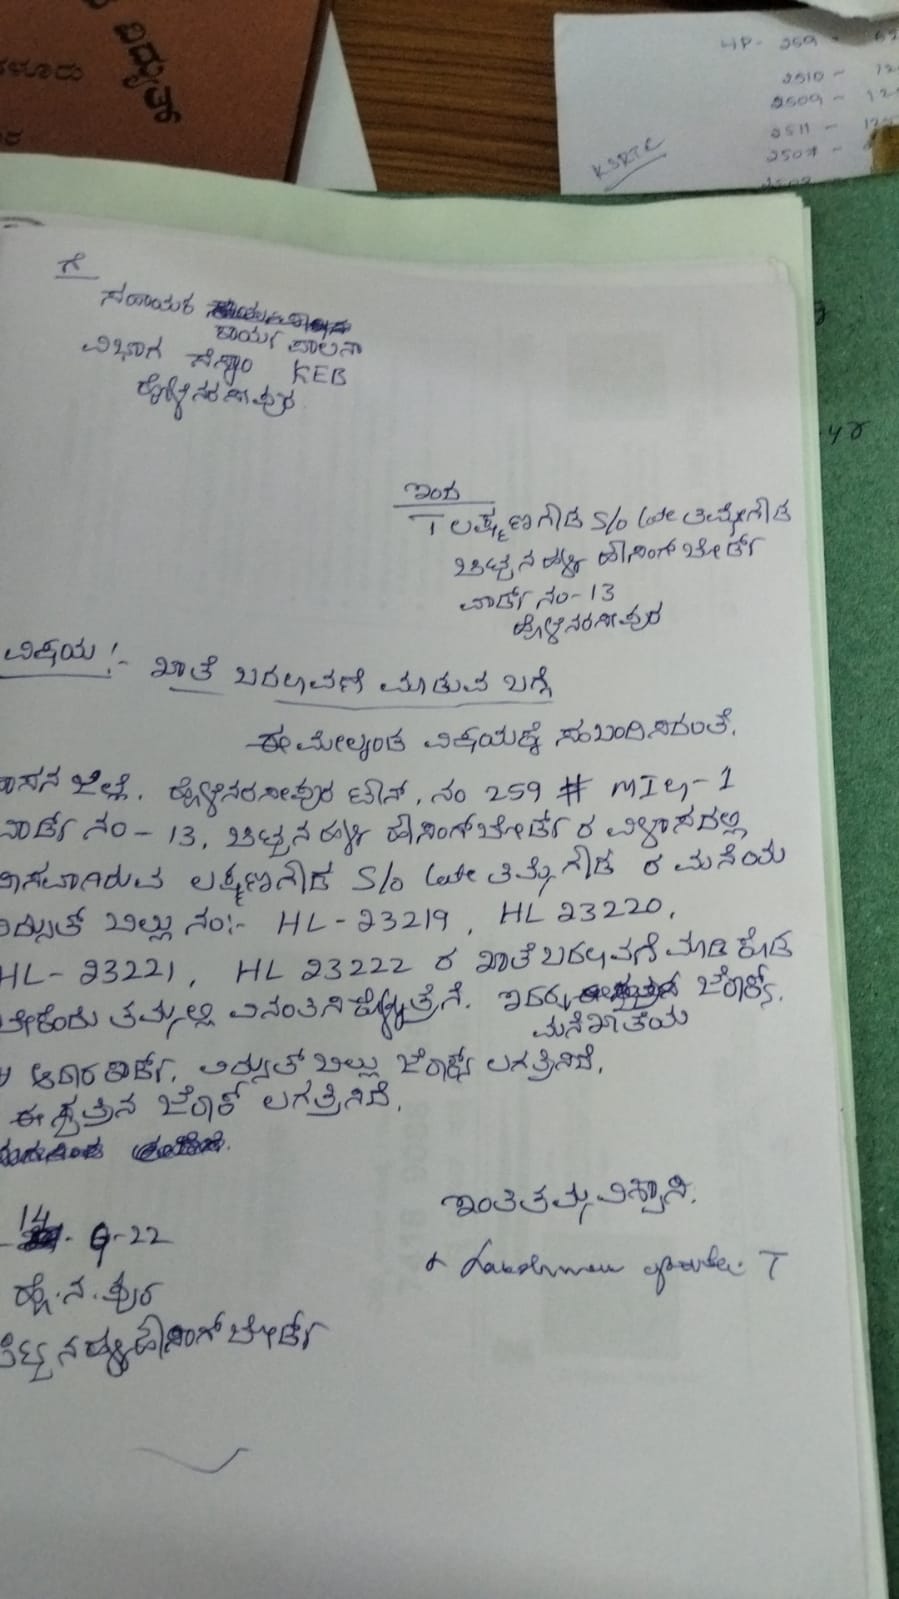 ವಿದ್ಯುತ್
ಳೂರು
HP- 259 -
2510 -
2509 - 12
2511 -
2507 -
KSRTC
ಗೆ
ಸಹಾಯಕ
ಕಾರ್ಯ ಪಾಲನಾ
ವಿಭಾಗ ಸೆಸ್ಕಾಂ KEB
ಹೊಳೆನರಸೀಪುರ
ಇಂದ
T ಲಕ್ಷ್ಮಣಗೌಡ S/o Late ತಿಮ್ಮೇಗೌಡ
ಚಿಟ್ನಹಳ್ಳಿ ಹೌಸಿಂಗ್ ಬೋರ್ಡ್
ವಾರ್ಡ್ ನಂ-13
ಹೊಳೆನರಸೀಪುರ
ವಿಷಯ :- ಖಾತೆ ಬದಲಾವಣೆ ಮಾಡುವ ಬಗ್ಗೆ
ಈ ಮೇಲ್ಕಂಡ ವಿಷಯಕ್ಕೆ ಸಂಬಂದಿಸಿದಂತೆ.
ಹಾಸನ ಜಿಲ್ಲೆ. ಹೊಳೆನರಸೀಪುರ ಟೌನ್, ನಂ 259 # MIG-1
ವಾರ್ಡ್ ನಂ - 13, ಚಿಟ್ನಹಳ್ಳಿ ಹೌಸಿಂಗ್ ಬೋರ್ಡ್ ರ ವಿಳಾಸದಲ್ಲಿ
ವಾಸವಾಗಿರುವ ಲಕ್ಷ್ಮಣಗೌಡ S/o Late ತಿಮ್ಮೇಗೌಡ ರ ಮನೆಯ
ವಿದ್ಯುತ್ ಬಿಲ್ಲು ನಂ:- HL-23219, HL 23220,
HL-23221, HL 23222 ರ ಖಾತೆ ಬದಲಾವಣೆ ಮಾಡಿ ಕೊಡ
ಬೇಕೆಂದು ತಮ್ಮಲ್ಲಿ ವಿನಂತಿಸಿಕೊಳ್ಳುತ್ತೇನೆ. ಇದಕ್ಕೆ ಜೆರಾಕ್ಸ್.
ಮನೆಖಾತೆಯ
ಆದಾರ ಕಾರ್ಡ್. ವಿದ್ಯುತ್ ಬಿಲ್ಲು ಜೆರಾಕ್ಸ್ ಲಗತ್ತಿಸಿದೆ.
ಈ ಪತ್ರಾನ ಜೆರಾಕ್ಸ್ ಲಗತ್ತಿಸಿದೆ.
ಇಂತಿ ತಮ್ಮ ವಿಶ್ವಾಸಿ.
14 - 9-22
ಹೊ.ನ.ಪುರ
ಚಿಟ್ನಹಳ್ಳಿ ಹೌಸಿಂಗ್ ಬೋರ್ಡ್